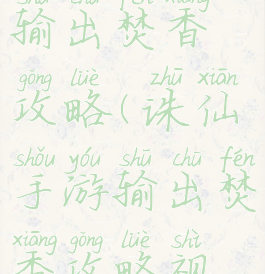 shū chū fén xiāng
输出焚香
gōng lüè zhū xiān
攻略(诛仙
shǒu yóu shū chū fén
手游输出焚
xiāng gōng lüè shì
香攻略视